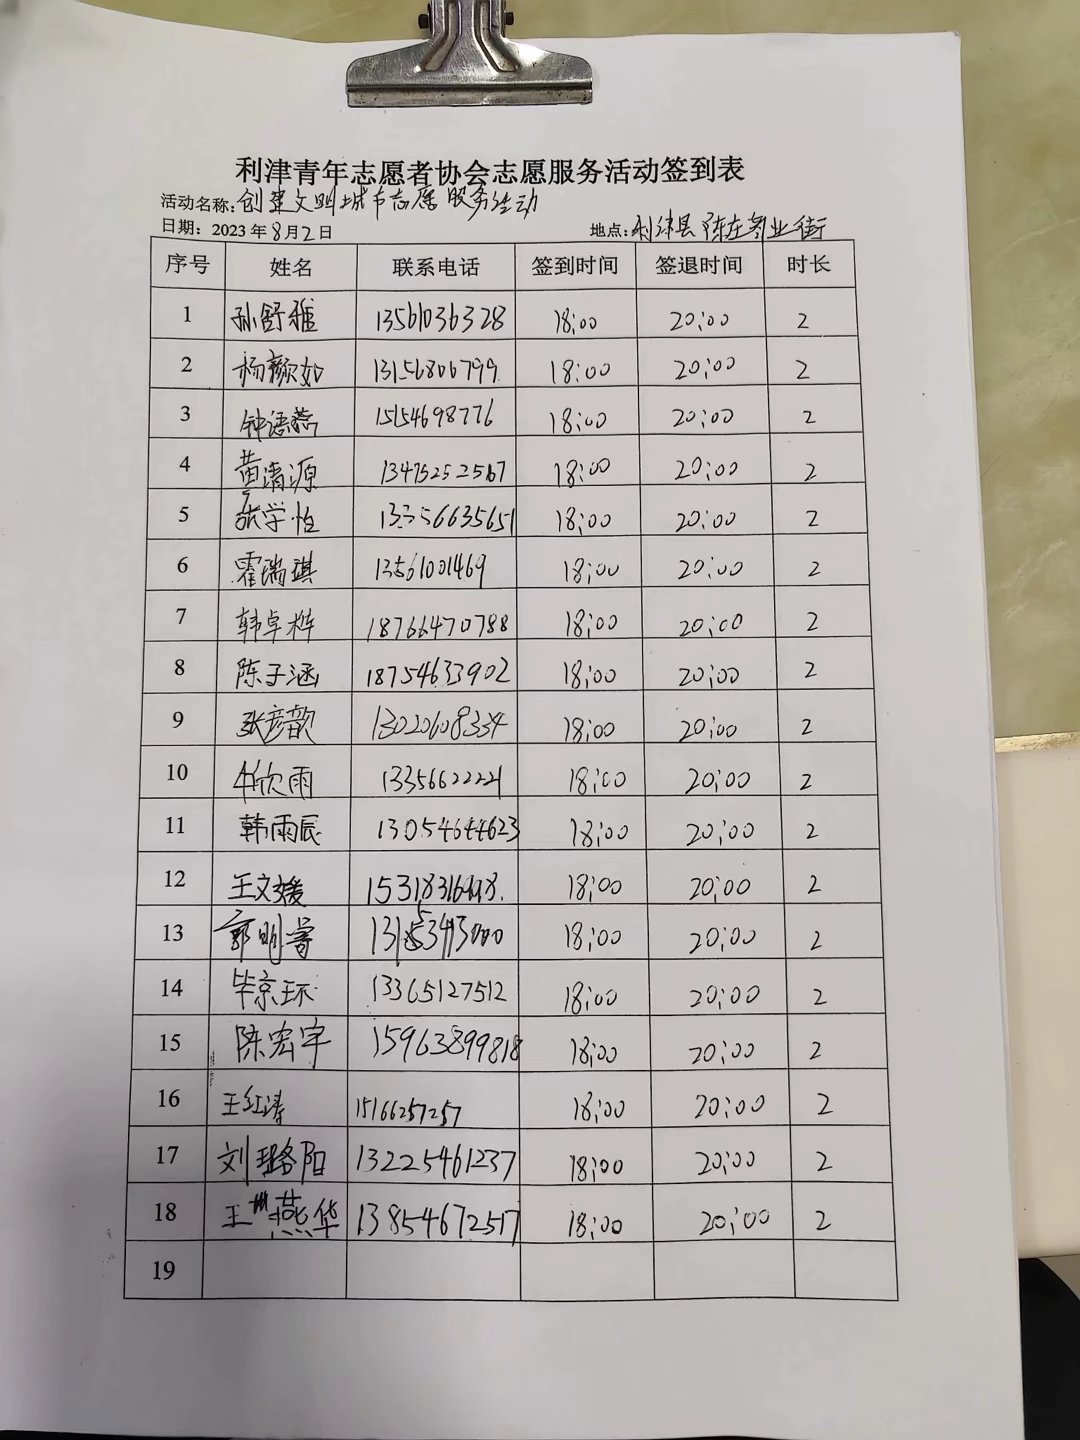 利津青年志愿者协会志愿服务活动签到表
活动名称:创建文明城市志愿服务活动
日期：2023年8月2日 地点:利津县陈庄商业街
序号 姓名 联系电话 签到时间 签退时间 时长
1 孙舒雅 13561036328 18:00 20:00 2
2 杨颜如 13156806799 18:00 20:00 2
3 钟语嫣 15154698776 18:00 20:00 2
4 黄清源 13475252567 18:00 20:00 2
5 张学怡 13356635651 18:00 20:00 2
6 霍瑞琪 13561001469 18:00 20:00 2
7 韩卓桦 18766470788 18:00 20:00 2
8 陈子涵 18754633902 18:00 20:00 2
9 张彦歆 13020608334 18:00 20:00 2
10 牛欣雨 13356622221 18:00 20:00 2
11 韩雨辰 13054644623 18:00 20:00 2
12 王文媛 18:00 20:00 2
13 18:00 20:00 2
14 毕京环 13365127512 18:00 20:00 2
15 陈宏宇 15963899818 18:00 20:00 2
16 王红涛 15166257257 18:00 20:00 2
17 刘璐阳 13225461237 18:00 20:00 2
18 王燕华 13854672517 18:00 20:00 2
19